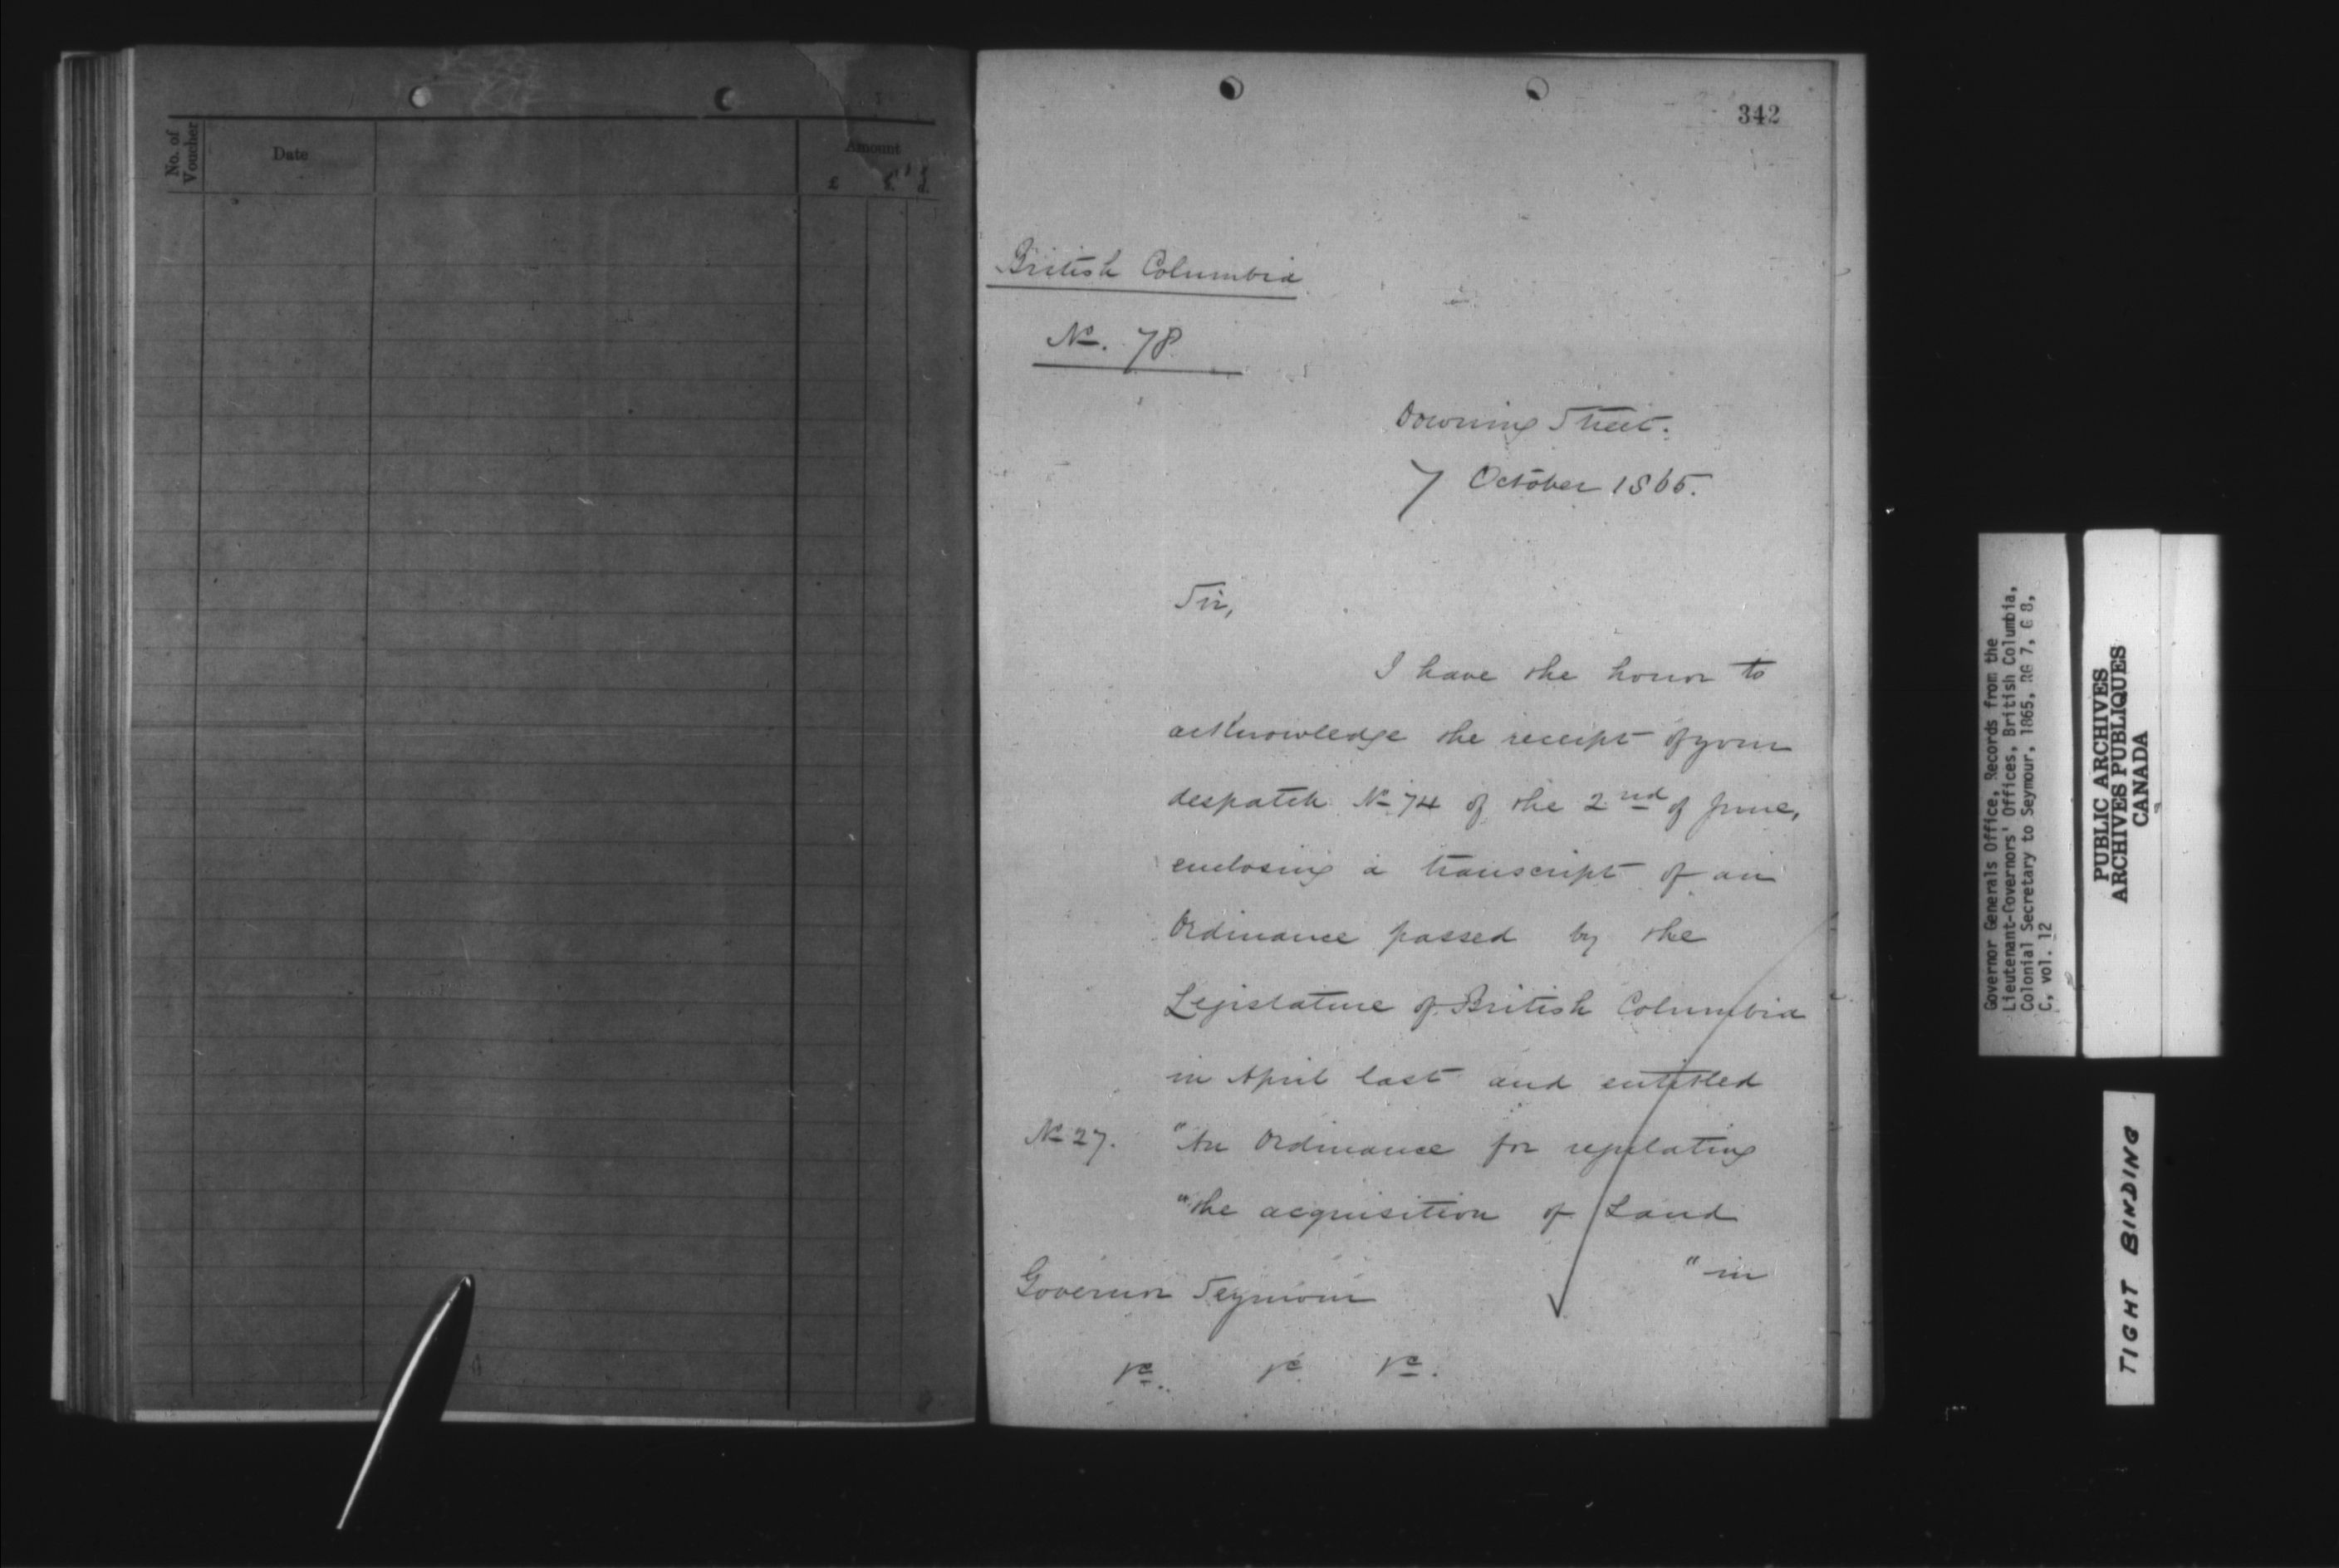 No. of
Voucher
Date
Amount
£ s. d.
342
British Columbia
No. 78
Downing Street.
7 October 1865.
Sir,
I have the honor to
acknowledge the receipt of your
despatch No 74 of the 2nd of June,
enclosing a transcript of an
Ordinance passed by the
Legislature of British Columbia
in April last and entitled
No 27. "An Ordinance for regulating
"the acquisition of Land
"in
Governor Seymour
&c. &c. &c.
Governor Generals Office, Records from the
Lieutenant-Governors' Offices, British Columbia,
Colonial Secretary to Seymour, 1865, RG 7, G 8,
C, vol. 12
PUBLIC ARCHIVES
ARCHIVES PUBLIQUES
CANADA
TIGHT BINDING